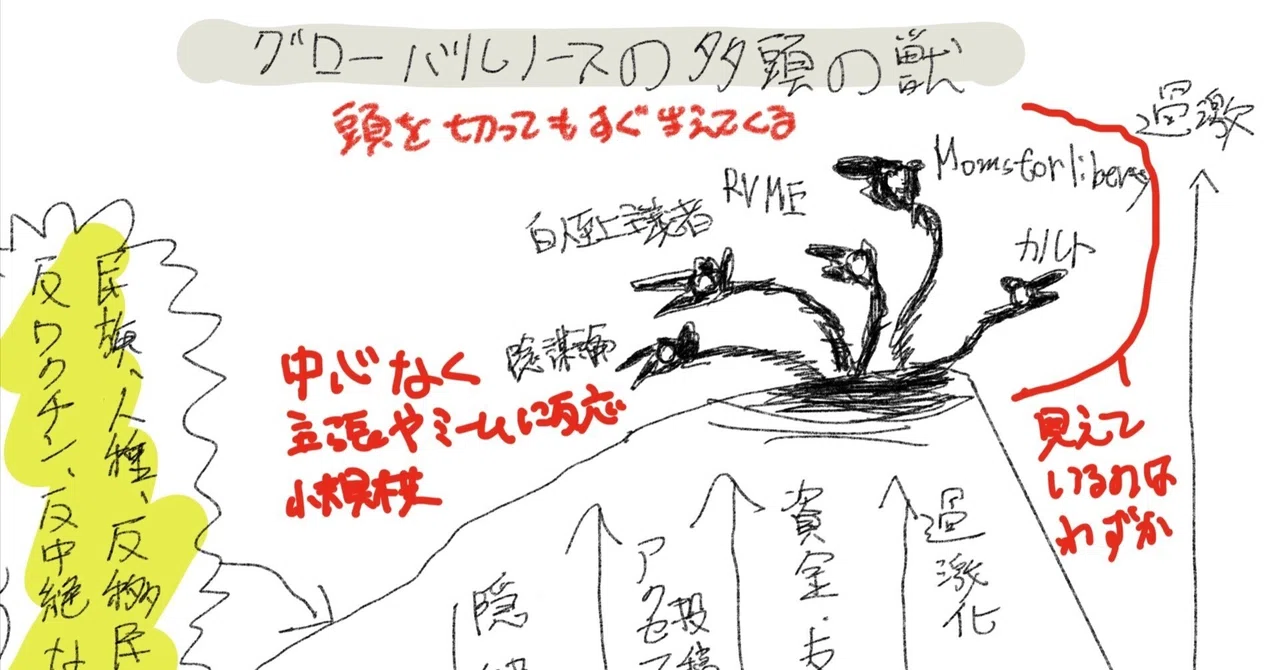 グローバルノースの多頭の獣
頭を切ってもすぐ生えてくる
過激
Momsforliberty
RVME
白人至上主義者
カルト
陰謀論
中心なく
主張やミームに反応
小規模
見えて
いるのは
わずか
民族、人種、反移民
反ワクチン、反中絶な
隠
アクセス
投稿
資金・
過激化